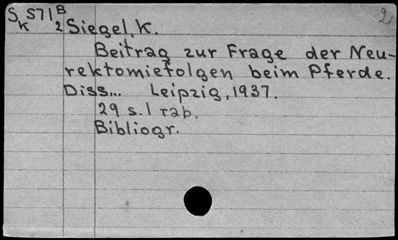 S S71 B 2
k 2 Siegel, K.
Beitrag zur Frage der Neu-
rektomiefolgen beim Pferde.
Diss... Leipzig, 1937.
29 s. 1 tab.
Bibliogr.